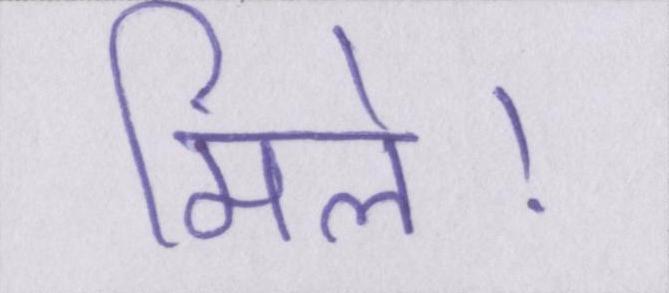 मिले!